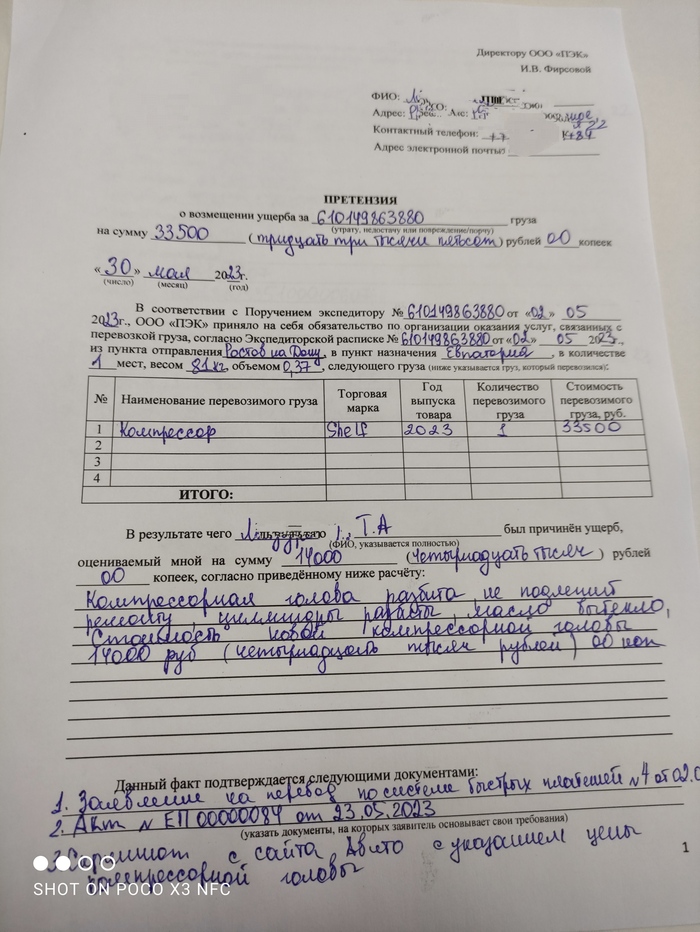 Директору ООО «ПЭК»
И.В. Фирсовой
ФИО:
Адрес:
Контактный телефон: +7
Адрес электронной почты:
ПРЕТЕНЗИЯ
о возмещении ущерба за 610149863880 груза
(утрату, недостачу или повреждение/порчу)
на сумму 33500 (тридцать три тысячи пятьсот) рублей 00 копеек
«30» мая 2023г.
(число) (месяц) (год)
В соответствии с Поручением экспедитору № 610149863880 от «02» 05
2023г., ООО «ПЭК» приняло на себя обязательство по организации оказания услуг, связанных с
перевозкой груза, согласно Экспедиторской расписке № 610149863880 от «02» 05 2023г.,
из пункта отправления Ростов на Дону, в пункт назначения Евпатория, в количестве
1 мест, весом 81кг, объемом 0,37, следующего груза (ниже указывается груз, который перевозился):
№ Наименование перевозимого груза Торговая марка Год выпуска товара Количество перевозимого груза Стоимость перевозимого груза, руб.
1 Компрессор Shelf 2023 1 33500
2
3
4
ИТОГО:
В результате чего Т.А был причинён ущерб,
(ФИО, указывается полностью)
оцениваемый мной на сумму 14000 (четырнадцать тысяч) рублей
00 копеек, согласно приведённому ниже расчёту:
Компрессорная голова разбита не подлежит
ремонту, цилиндры масло вытекло,
Стоимость новой компрессорной головы
14000 руб (четырнадцать тысяч рублей) 00 коп
Данный факт подтверждается следующими документами:
1. Заявление на перевод по системе быстрых платежей №4 от 02.0
2. Акт № ЕП00000084 от 23.05.2023
(указать документы, на которых заявитель основывает свои требования)
3. Скриншот с сайта Авито с указанием цены
компрессорной головы
1
SHOT ON POCO X3 NFC